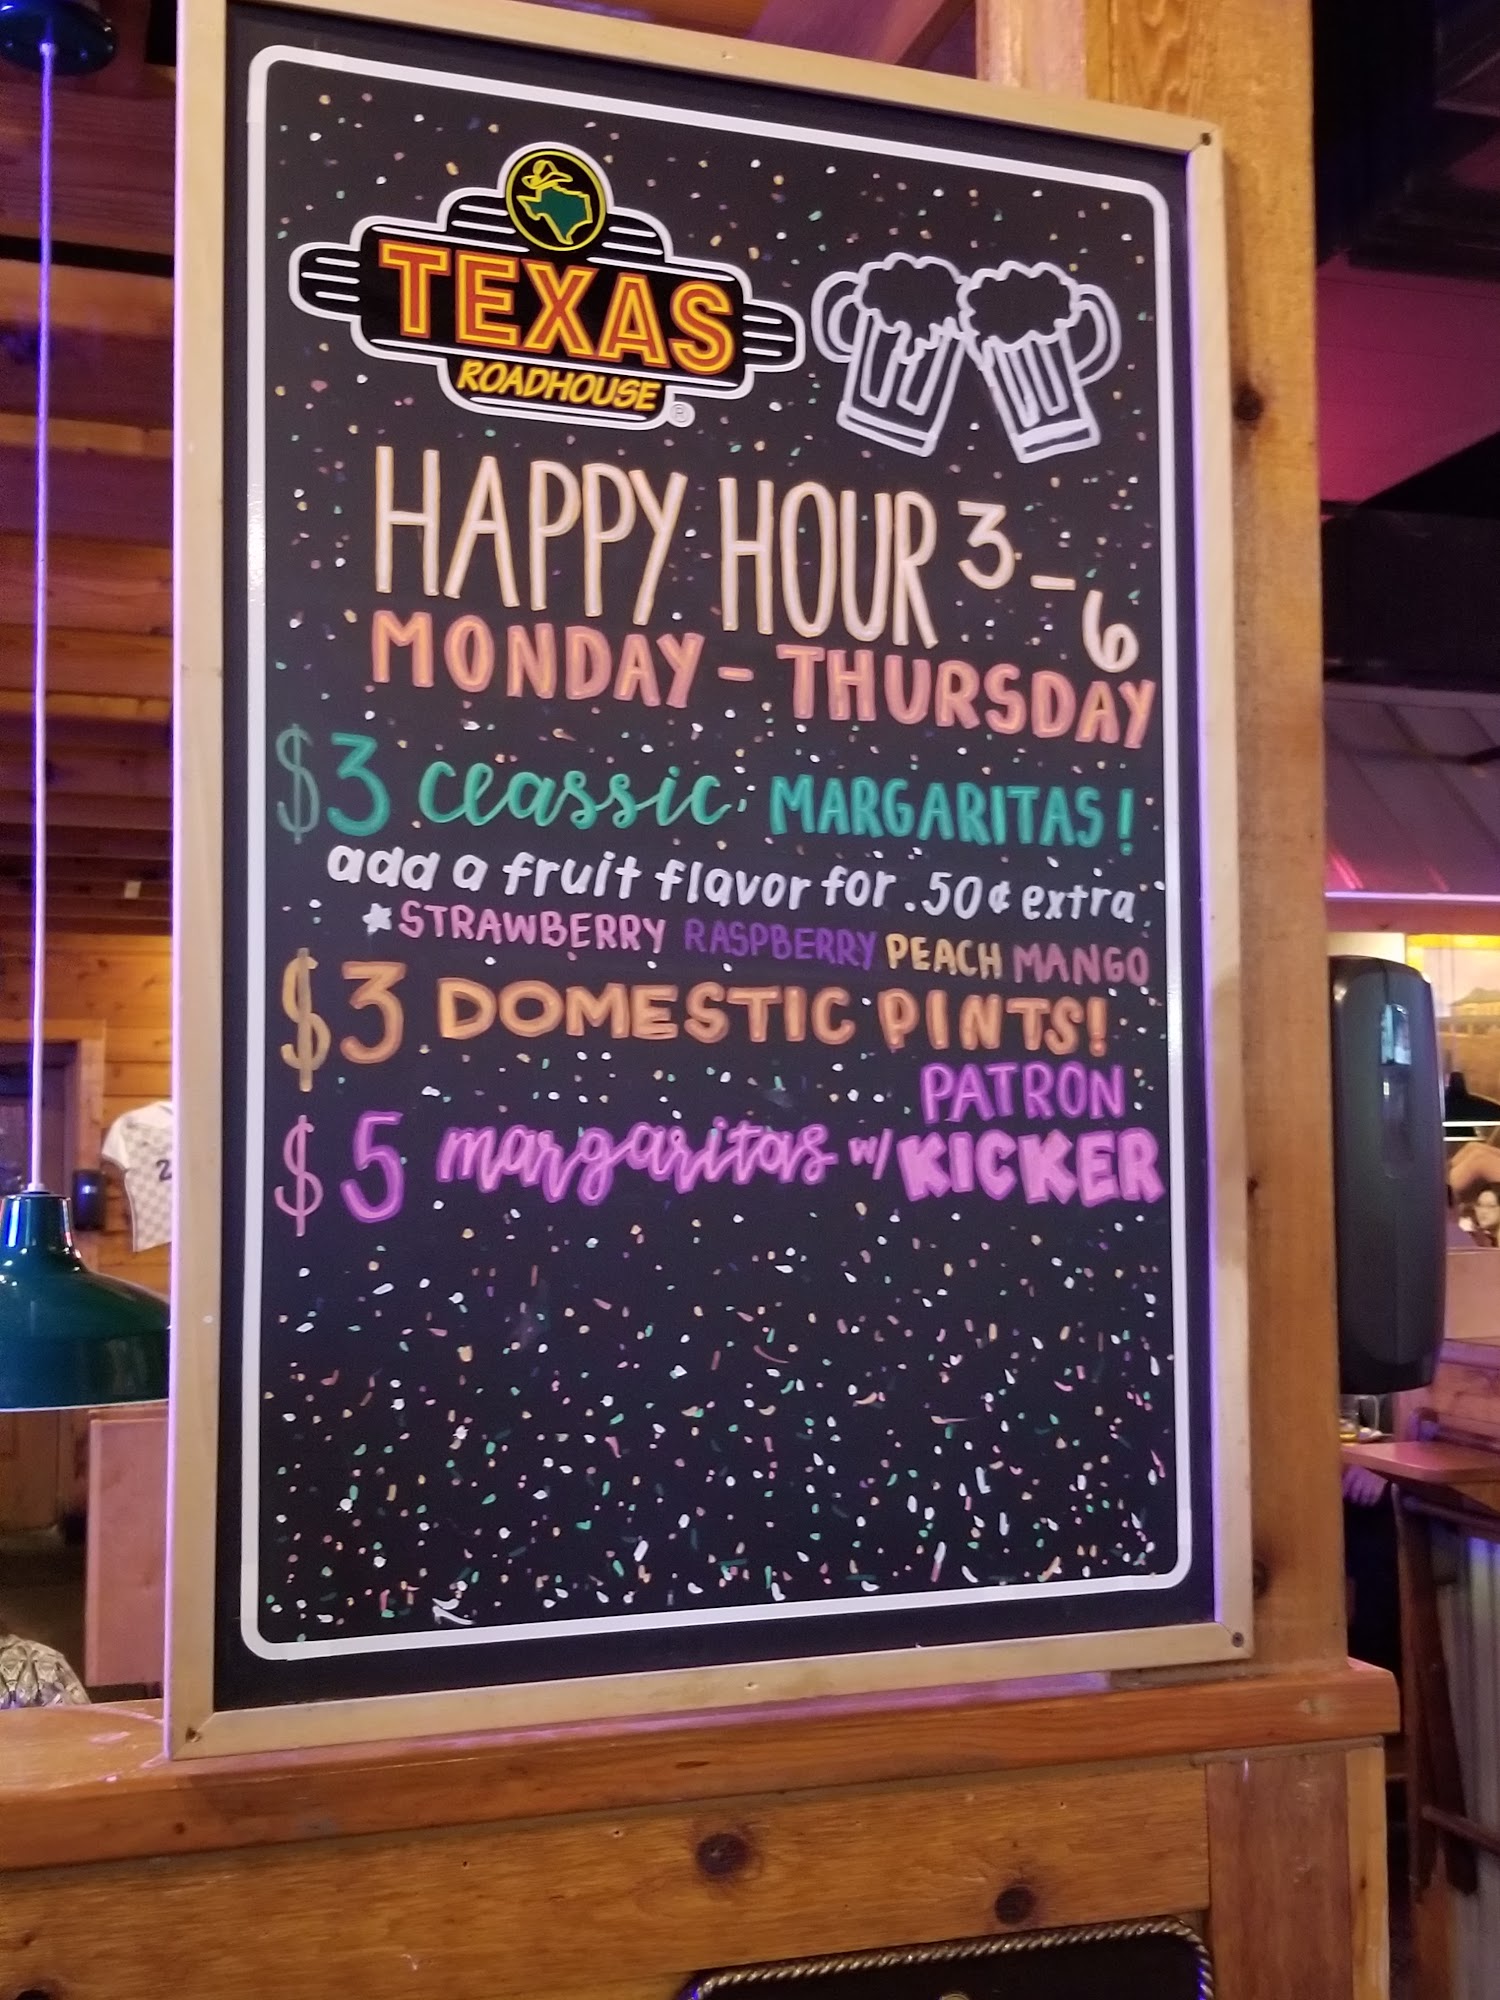 TEXAS
ROADHOUSE
®
HAPPY HOUR 3-6
MONDAY - THURSDAY
$3 classic MARGARITAS!
add a fruit flavor for .50¢ extra
*STRAWBERRY RASPBERRY PEACH MANGO
$3 DOMESTIC PINTS!
$5 margaritas w/ PATRON
KICKER
2